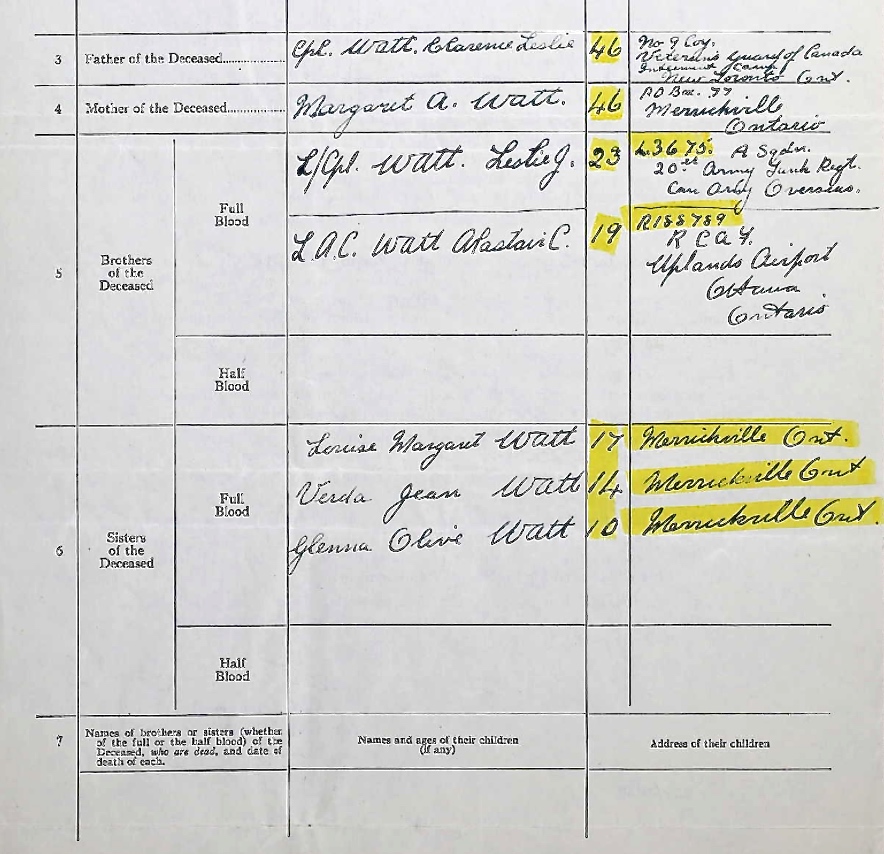 3 Father of the Deceased............ Cpl. Watt. Clarence Leslie 46 No 9 Coy.
Veterans Guard of Canada
Internment Camp
New Toronto Ont.
4 Mother of the Deceased............ Margaret A. Watt. 46 P.O Box. 77
Merrickville
Ontario
5 Brothers of the Deceased
Full Blood
L/Cpl. Watt. Leslie J. 23 L3675. A Sqdn.
20th Army Tank Regt.
Can Army Overseas.
L.A.C. Watt Alastair C. 19 R188789
R C A F.
Uplands Airport
Ottawa
Ontario
Half Blood
6 Sisters of the Deceased
Full Blood
Louise Margaret Watt 17 Merrickville Ont.
Verda Jean Watt 14 Merrickville Ont
Glenna Olive Watt 10 Merrickville Ont.
Half Blood
7 Names of brothers or sisters (whether
of the full or the half blood) of the
Deceased, who are dead, and date of
death of each.
Names and ages of their children
(if any)
Address of their children